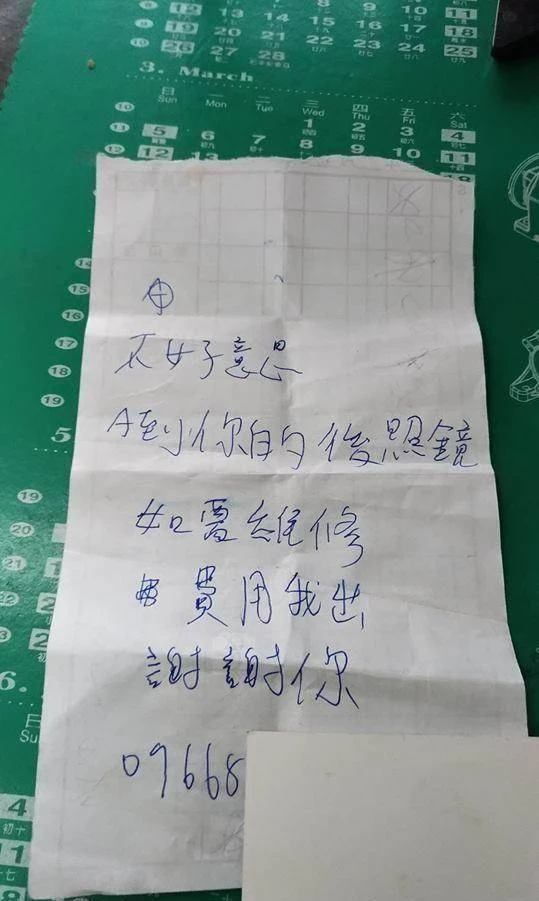 12 13 14 15 16 17 18
19 20 21 22 23 24 25
26 27 28
3. March
日 一 二 三 四 五 六
Sun Mon Tue Wed Thu Fri Sat
1 2 3 4
5 6 7 8 9 10 11
12
不好意思
A到你的後照鏡
如需維修
費用我出
謝謝你
09668